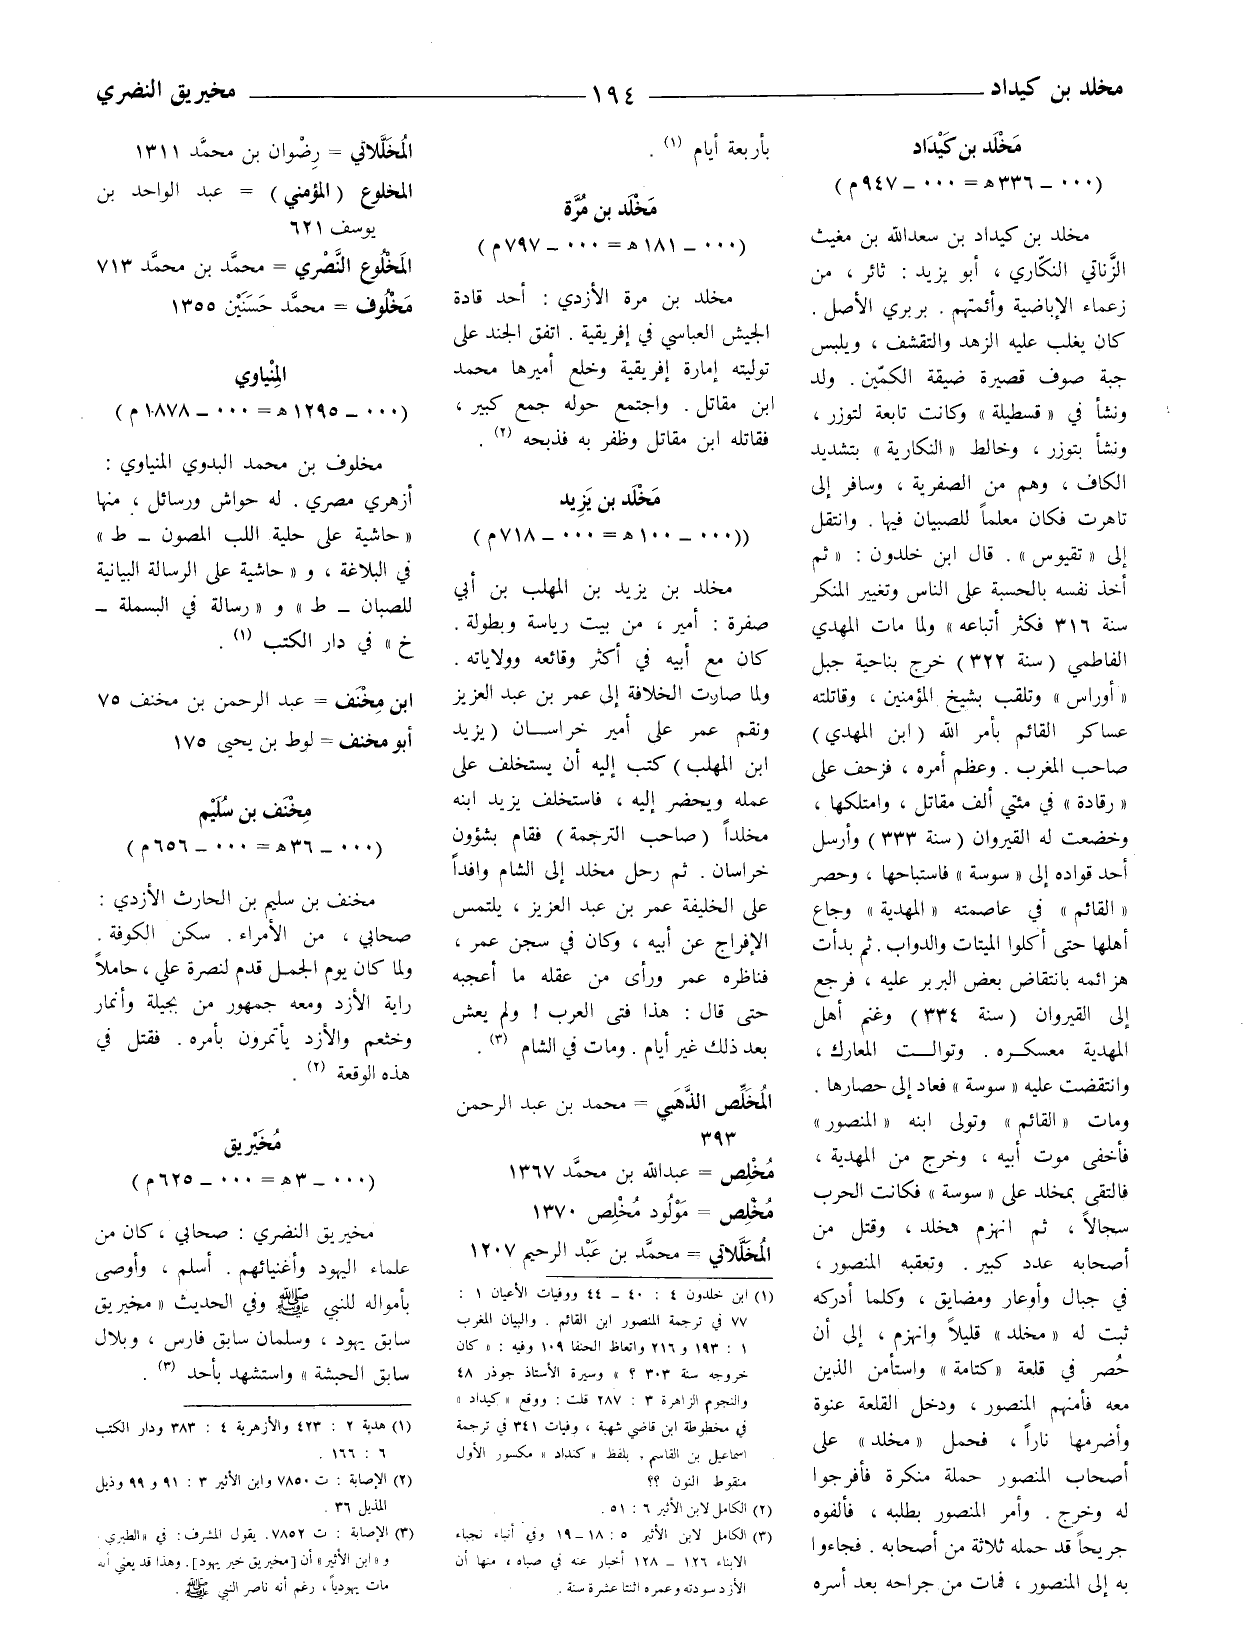 مخلد بن كيداد ــــــ ١٩٤ ــــــ مخيريق النضري
مَخْلَد بن كَيْدَاد
(٠٠٠ ـ ٣٣٦ هـ = ٠٠٠ ـ ٩٤٧ م)
مخلد بن كيداد بن سعدالله بن مغيث
الزَّناتي النكّاري ، أبو يزيد : ثائر ، من
زعماء الإباضية وأئمتهم . بربري الأصل .
كان يغلب عليه الزهد والتقشف ، ويلبس
جبة صوف قصيرة ضيقة الكمّين . ولد
ونشأ في « قسطيلة » وكانت تابعة لتوزر ،
ونشأ بتوزر ، وخالط « النكارية » بتشديد
الكاف ، وهم من الصفرية ، وسافر إلى
تاهرت فكان معلماً للصبيان فيها . وانتقل
إلى « تقيوس » . قال ابن خلدون : « ثم
أخذ نفسه بالحسبة على الناس وتغيير المنكر
سنة ٣١٦ فكثر أتباعه » ولما مات المهدي
الفاطمي (سنة ٣٢٢) خرج بناحية جبل
« أوراس » وتلقب بشيخ المؤمنين ، وقاتلته
عساكر القائم بأمر الله (ابن المهدي)
صاحب المغرب . وعظم أمره ، فزحف على
« رقادة » في مئتي ألف مقاتل ، وامتلكها ،
وخضعت له القيروان (سنة ٣٣٣) وأرسل
أحد قواده إلى « سوسة » فاستباحها ، وحصر
« القائم » في عاصمته « المهدية » وجاع
أهلها حتى أكلوا الميتات والدواب . ثم بدأت
هزائمه بانتقاض بعض البربر عليه ، فرجع
إلى القيروان (سنة ٣٣٤) وغنم أهل
المهدية معسكره . وتوالت المعارك ،
وانتقضت عليه « سوسة » فعاد إلى حصارها .
ومات « القائم » وتولى ابنه « المنصور »
فأخفى موت أبيه ، وخرج من المهدية ،
فالتقى بمخلد على « سوسة » فكانت الحرب
سجالاً ، ثم انهزم مخلد ، وقتل من
أصحابه عدد كبير . وتعقبه المنصور ،
في جبال وأوعار ومضايق ، وكلما أدركه
ثبت له « مخلد » قليلاً وانهزم ، إلى أن
حُصر في قلعة « كتامة » واستأمن الذين
معه فأمنهم المنصور ، ودخل القلعة عنوة
وأضرمها ناراً ، فحمل « مخلد » على
أصحاب المنصور حملة منكرة فأفرجوا
له وخرج . وأمر المنصور بطلبه ، فألفوه
جريحاً قد حمله ثلاثة من أصحابه . فجاءوا
به إلى المنصور ، فمات من جراحه بعد أسره
بأربعة أيام (١) .
مَخْلَد بن مُرَّة
(٠٠٠ ـ ١٨١ هـ = ٠٠٠ ـ ٧٩٧ م)
مخلد بن مرة الأزدي : أحد قادة
الجيش العباسي في إفريقية . اتفق الجند على
توليته إمارة إفريقية وخلع أميرها محمد
ابن مقاتل . واجتمع حوله جمع كبير ،
فقاتله ابن مقاتل وظفر به فذبحه (٢) .
مَخْلَد بن يَزِيد
((٠٠٠ ـ ١٠٠ هـ = ٠٠٠ ـ ٧١٨ م)
مخلد بن يزيد بن المهلب بن أبي
صفرة : أمير ، من بيت رياسة وبطولة .
كان مع أبيه في أكثر وقائعه وولاياته .
ولما صارت الخلافة إلى عمر بن عبد العزيز
ونقم عمر على أمير خراسان (يزيد
ابن المهلب) كتب إليه أن يستخلف على
عمله ويحضر إليه ، فاستخلف يزيد ابنه
مخلداً (صاحب الترجمة) فقام بشؤون
خراسان . ثم رحل مخلد إلى الشام وافداً
على الخليفة عمر بن عبد العزيز ، يلتمس
الإفراج عن أبيه ، وكان في سجن عمر ،
فناظره عمر ورأى من عقله ما أعجبه
حتى قال : هذا فتى العرب ! ولم يعش
بعد ذلك غير أيام . ومات في الشام (٣) .
المُخَلِّص الذَّهَبي = محمد بن عبد الرحمن
٣٩٣
مُخْلِص = عبدالله بن محمَّد ١٣٦٧
مُخْلِص = مَوْلُود مُخْلِص ١٣٧٠
المُخَلَّلاتي = محمَّد بن عَبْد الرحيم ١٢٠٧
(١) ابن خلدون ٤ : ٤٠ ـ ٤٤ ووفيات الأعيان ١ :
٧٧ في ترجمة المنصور ابن القائم . والبيان المغرب
١ : ١٩٣ و ٢١٦ واتعاظ الحنفا ١٠٩ وفيه : « كان
خروجه سنة ٣٠٣ ؟ » وسيرة الأستاذ جوذر ٤٨
والنجوم الزاهرة ٣ : ٢٨٧ قلت : ووقع « كيداد »
في مخطوطة ابن قاضي شهبة ، وفيات ٣٤١ في ترجمة
اسماعيل بن القاسم ، بلفظ « كنداد » مكسور الأول
منقوط النون ؟؟
(٢) الكامل لابن الأثير ٦ : ٥١ .
(٣) الكامل لابن الأثير ٥ : ١٨ـ١٩ وفي أنباء نجباء
الابناء ١٢٦ ـ ١٢٨ أخبار عنه في صباه ، منها أن
الأزد سودته وعمره اثنتا عشرة سنة .
المُخَلَّلاتي = رِضْوان بن محمَّد ١٣١١
المخلوع (المؤمني) = عبد الواحد بن
يوسف ٦٢١
المَخْلُوع النَّصْري = محمَّد بن محمَّد ٧١٣
مَخْلُوف = محمَّد حَسَنَيْن ١٣٥٥
المِنْياوي
(٠٠٠ ـ ١٢٩٥ هـ = ٠٠٠ ـ ١٨٧٨ م)
مخلوف بن محمد البدوي المنياوي :
أزهري مصري . له حواش ورسائل ، منها
« حاشية على حلية اللب المصون ـ ط »
في البلاغة ، و « حاشية على الرسالة البيانية
للصبان ـ ط » و « رسالة في البسملة ـ
خ » في دار الكتب (١) .
ابن مِخْنَف = عبد الرحمن بن مخنف ٧٥
أبو مخنف = لوط بن يحيى ١٧٥
مِخْنَف بن سُلَيْم
(٠٠٠ ـ ٣٦ هـ = ٠٠٠ ـ ٦٥٦ م)
مخنف بن سليم بن الحارث الأزدي :
صحابي ، من الأمراء . سكن الكوفة .
ولما كان يوم الجمل قدم لنصرة علي ، حاملاً
راية الأزد ومعه جمهور من بجيلة وأنمار
وخثعم والأزد يأتمرون بأمره . فقتل في
هذه الوقعة (٢) .
مُخَيْريق
(٠٠٠ ـ ٣ هـ = ٠٠٠ ـ ٦٢٥ م)
مخيريق النضري : صحابي ، كان من
علماء اليهود وأغنيائهم . أسلم ، وأوصى
بأمواله للنبي ﷺ وفي الحديث « مخيريق
سابق يهود ، وسلمان سابق فارس ، وبلال
سابق الحبشة » واستشهد بأحد (٣) .
(١) هدية ٢ : ٤٢٣ والأزهرية ٤ : ٣٨٣ ودار الكتب
٦ : ١٦٦ .
(٢) الإصابة : ت ٧٨٥٠ وابن الأثير ٣ : ٩١ و ٩٩ وذيل
المذيل ٣٦ .
(٣) الإصابة : ت ٧٨٥٢. يقول المشرف: في «الطبري
و «ابن الأثير» أن [مخيريق خير يهود]. وهذا قد يعني أنه
مات يهودياً، رغم أنه ناصر النبي ﷺ .